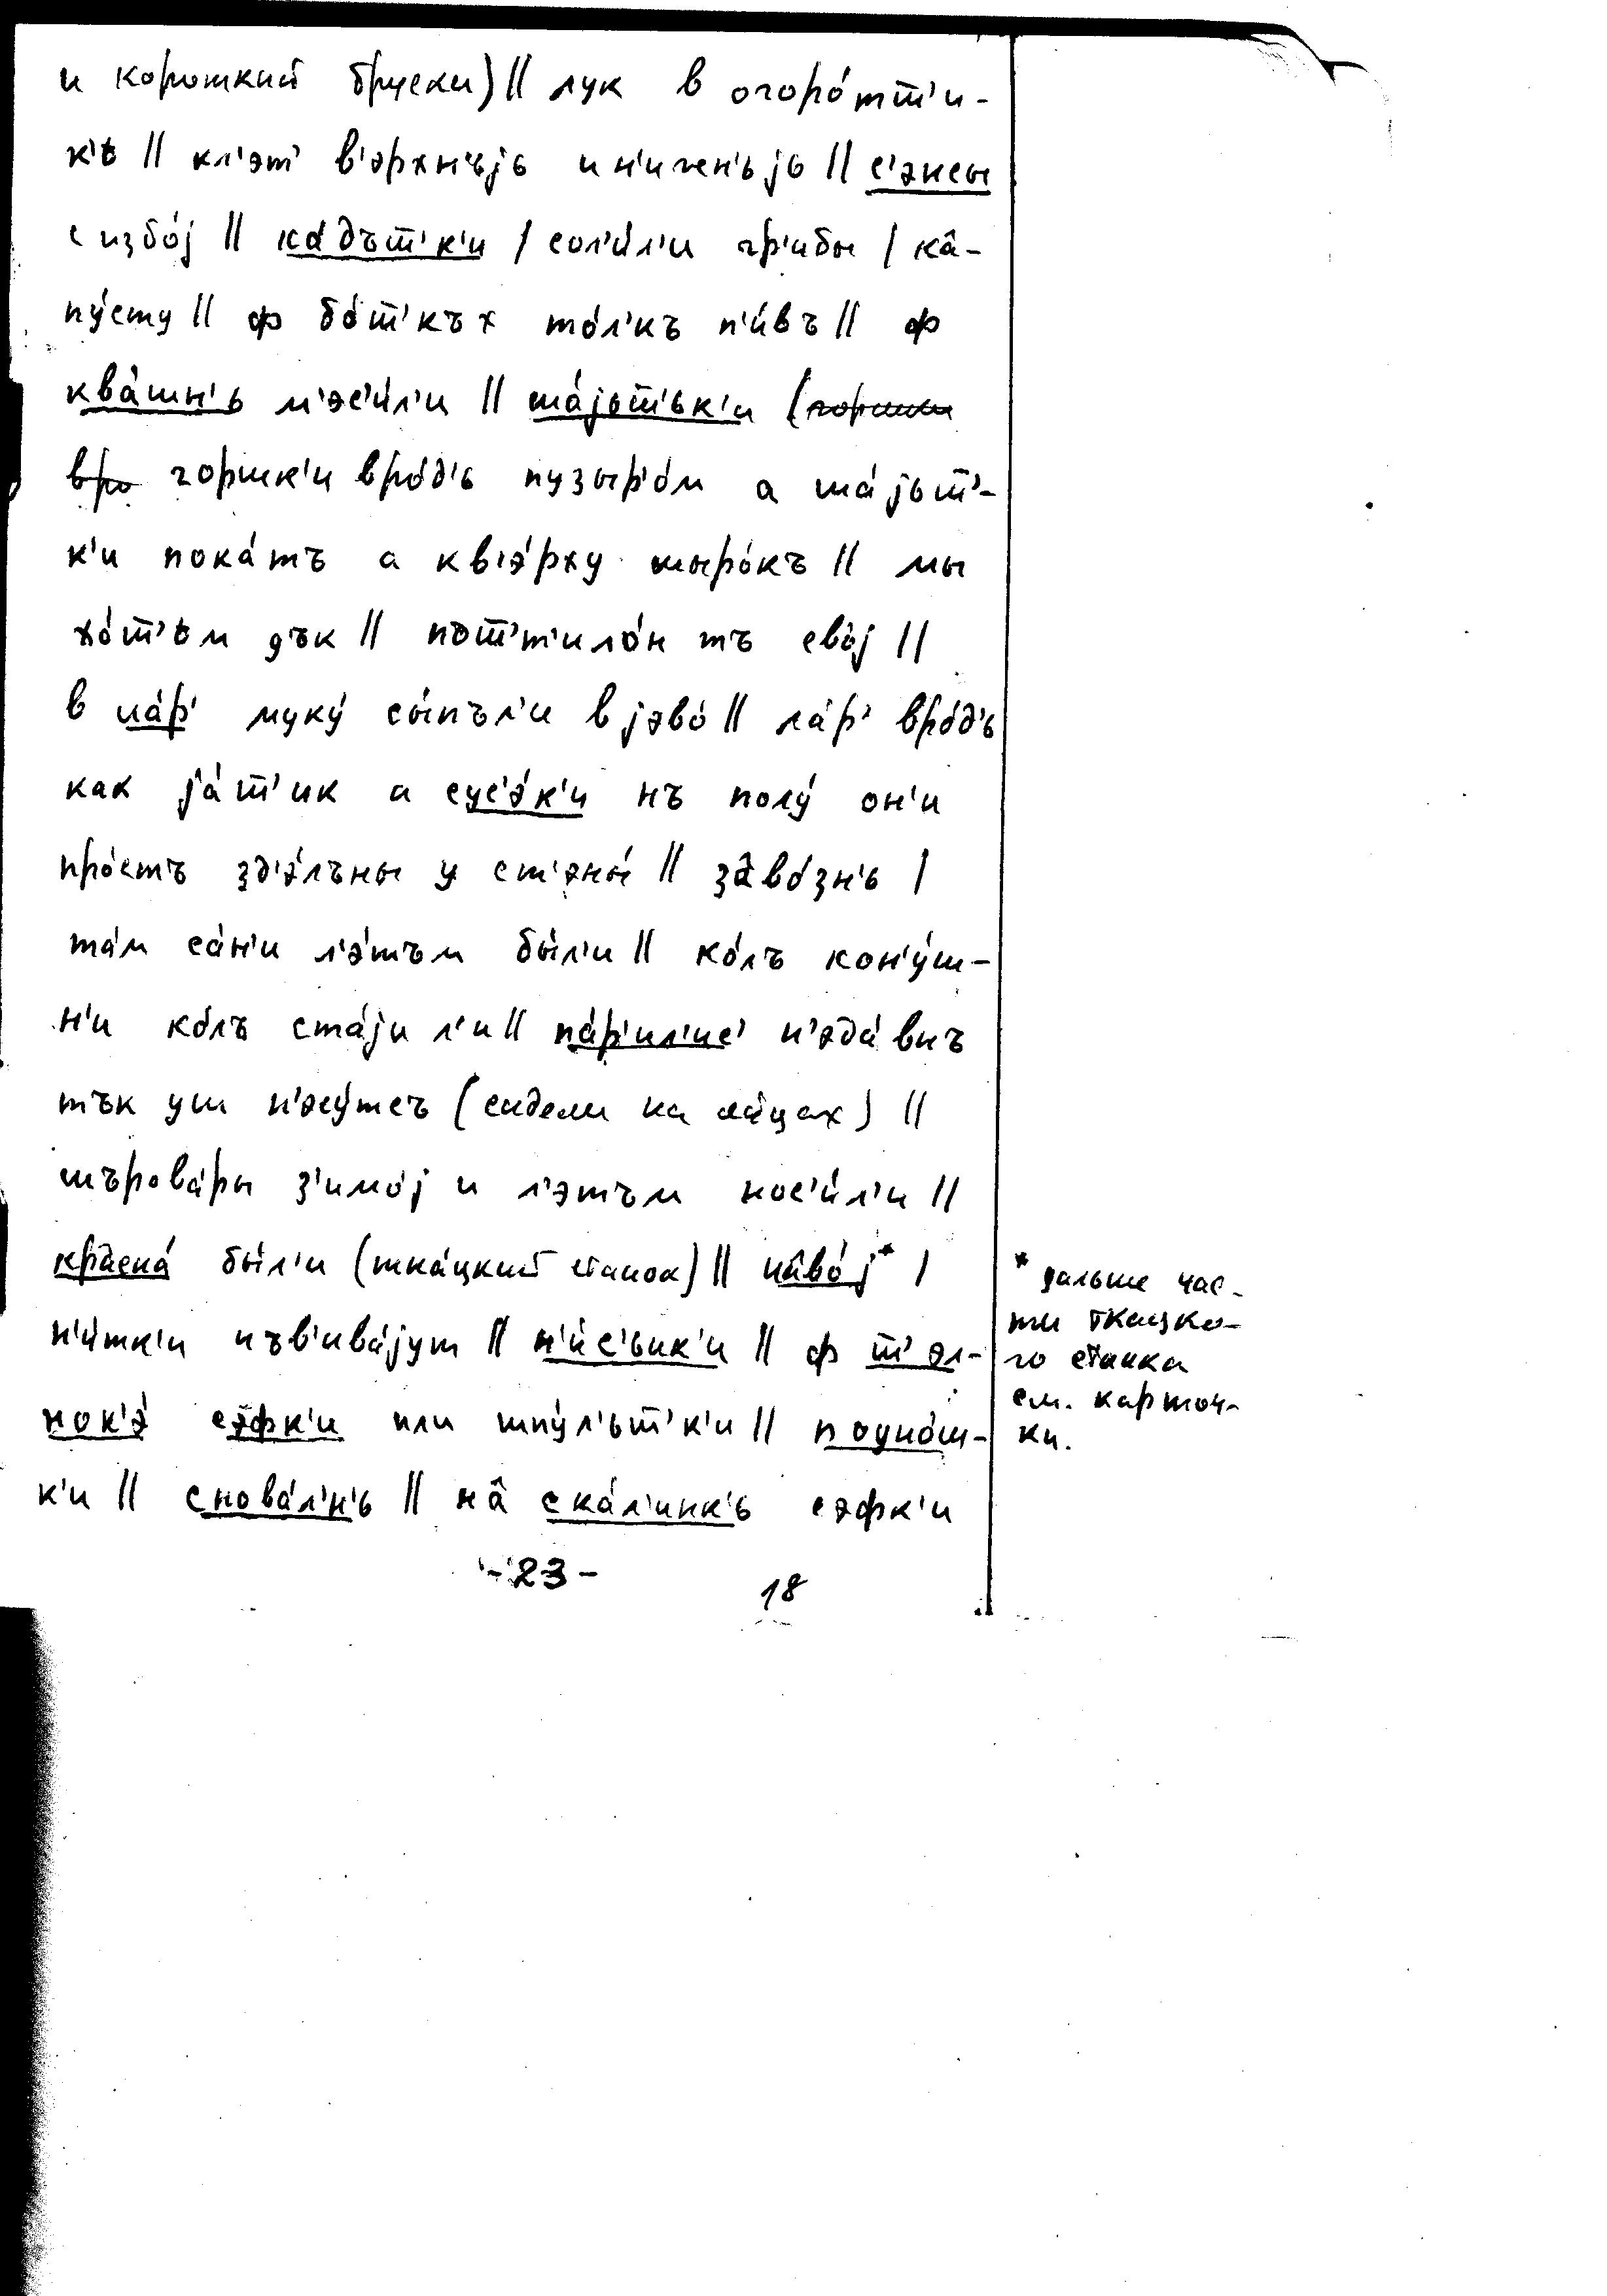 и короткий бруски) || лук в огоро́тт̅'и-
к'ъ || кл'эт' в'эрхн'ъjь и н'ижн'ьjь || с'э́нсы
с избо́j || ка́дът̅'к'и / сол'и́л'и гр'ибы / ка̂-
пу́сту || ф бо́т̅'къх то́л'къ п'и́въ || ф
ква́шн'ь м'эс'и́л'и || ша́jьт̅'ьк'и (горшки
вро горшк'и вро́д'ь пузыр'о́м а ша́jьт̅'-
к'и пока́тъ а кв'э́рху шыро́къ || мы
хо́т̅'ьм дък || път̅'т'ило́н тъ сво́j ||
в ла́р' муку́ сы́пъл'и в jэво́ || ла́р' вро́д'ь
как jа́т̅'ик а сус'э́к'и нъ полу́ он'и
про́стъ зд'э́лъны у ст'эны́ || за̂во́зн'ь /
та́м са́н'и л'э́тъм бы́л'и || ко́лъ кон'у́ш-
н'и ко́лъ ста́jи л'и || па́р'ил'ис' н'эда́внъ
тък уш н'эсу́тсъ (сидели на яйцах) ||
шърова́ры з'имо́j и л'э́тъм нос'и́л'и ||
кра̂сна́ бы́л'и (тка́цкий станок) || на̂во́j* /
н'и́тк'и нъв'ива́jут || н'и́с'ьик'и || ф т̅'эл-
нок'э́ сэ́фк'и или шпу́л'ьт̅'к'и || подно́ш-
к'и || снова́л'н'ь || на̂ ска́л'инк'ь сэфк'и
-23-
18
* дальше час-
ти ткацко-
го станка
см. карточ-
ки.